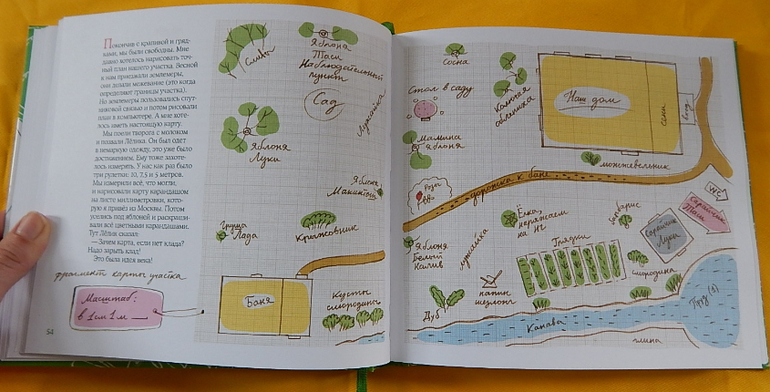 Покончив с крапивой и гряд-
ками, мы были свободны. Мне
давно хотелось нарисовать точ-
ный план нашего участка. Весной
к нам приезжали землемеры,
они делали межевание (это когда
определяют границы участка).
Но землемеры пользовались спут-
никовой связью и потом рисовали
план в компьютере. А мне хоте-
лось иметь настоящую карту.
Мы поели творога с молоком
и позвали Лёлика. Он был одет
в немаркую одежду, это уже было
достижением. Ему тоже захоте-
лось измерять. У нас как раз было
три рулетки: 10, 7,5 и 5 метров.
Мы измерили всё, что могли,
и нарисовали карту карандашом
на листе миллиметровки, кото-
рую я привёз из Москвы. Потом
уселись под яблоней и раскраши-
вали всё цветными карандашами.
Тут Лёлик сказал:
— Зачем карта, если нет клада?
Надо зарыть клад!
Это была идея века!
фрагмент карты участка
Масштаб:
в 1 см 1 м
54
Сливы
Яблоня
Таси
Наблюдательный
пункт
Сад
Лужайка
Яблоня
Луки
Яблоня
Груша
Лада
Крыжовник
Баня
Кусты
смородины
Сосна
Стол в саду
Колючая
облепиха
Наш дом
сени
вход
Мамина
яблоня
можжевельник
дорожка к бане
Розы
WC
Сарайчик
Таси
Ёлка,
наряжаем
на НГ
Барбарис
Сарайчик
Луки
Яблоня
Белый
Налив
лужайка
Грядки
смородина
папин
шезлонг
Дуб
Канава
Пруд
глина